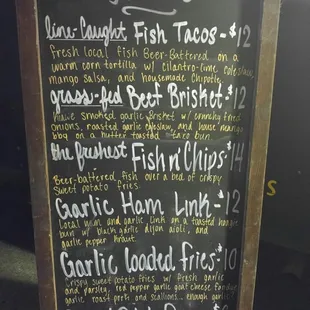 line-Caught Fish Tacos - $12
Fresh local fish Beer-Battered on a
warm corn tortilla w/ cilantro-lime coleslaw
mango salsa, and housemade Chipotle
grass-fed Beef Brisket - $12
smoked garlic Brisket w/ crunchy fried
onions, roasted garlic coleslaw, and house mango
bbq on a butter toasted taco bun
the freshest Fish n' Chips - $14
Beer-battered, fish over a bed of crispy
sweet potato fries.
Garlic Ham Link - $12
Local ham and garlic link on a toasted
bun w/ black garlic dijon aioli, and
garlic pepper kraut.
Garlic loaded Fries - $10
Crispy sweet potato fries w/ fresh garlic
and parsley, red pepper garlic goat cheese
garlic, roast pork and scallions... enough garlic?